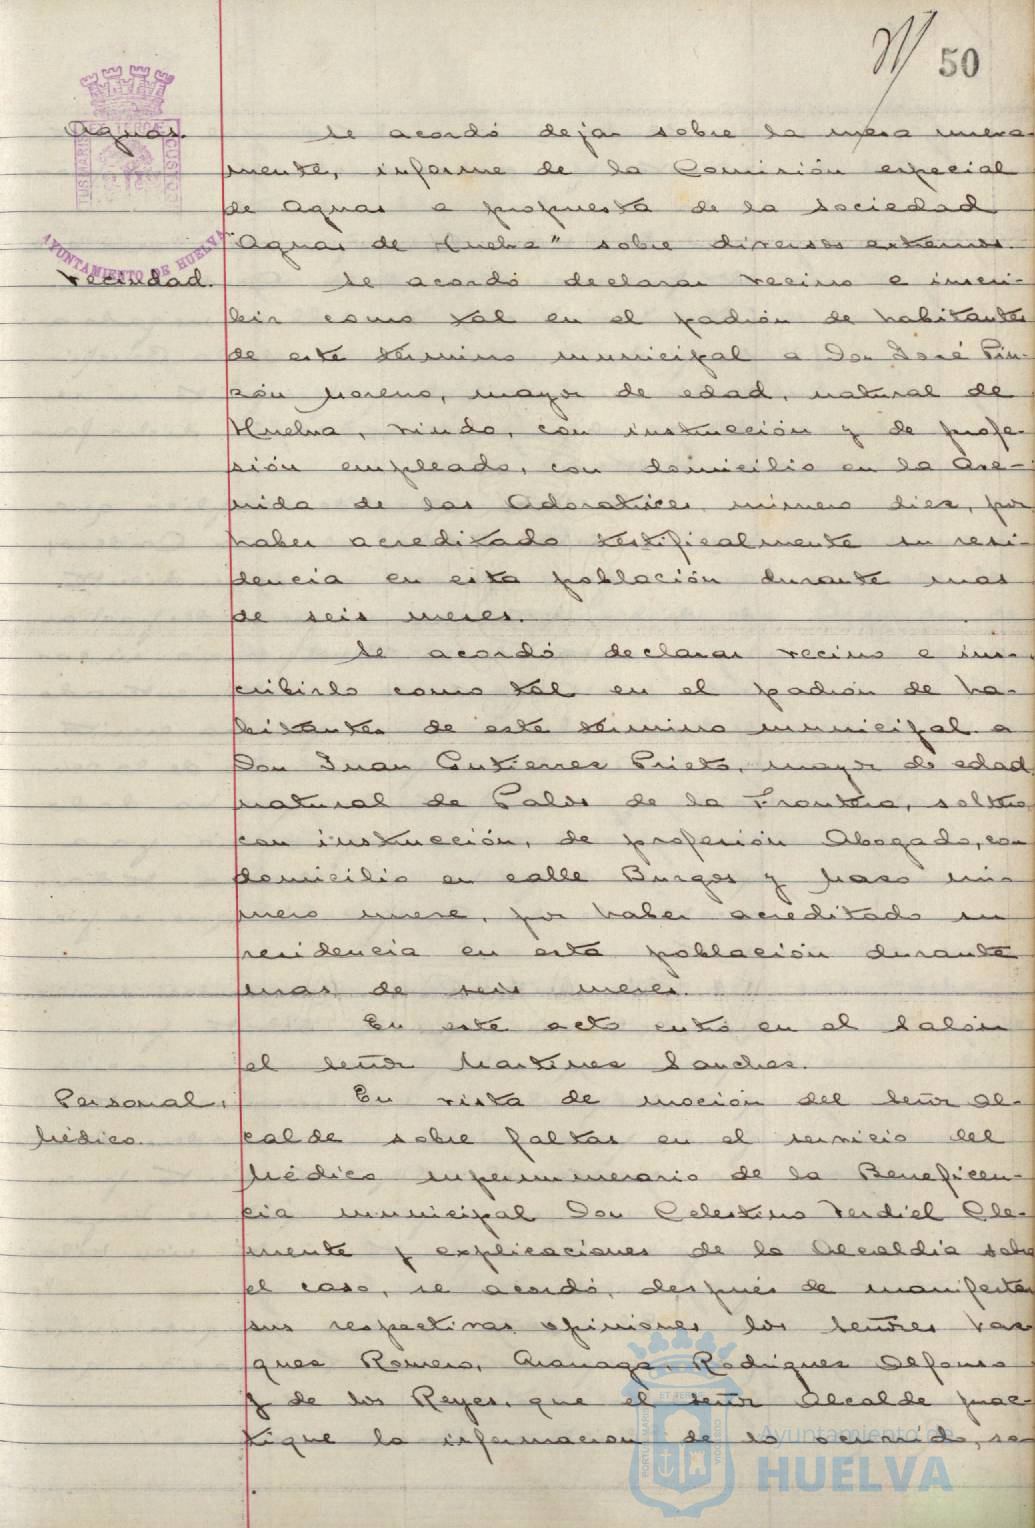 50
Aguas.
Se acordó dejar sobre la mesa nueva-
mente, informe de la Comisión especial
de Aguas a propuesta de la Sociedad
"Aguas de Huelva" sobre diversos extremos.
AYUNTAMIENTO DE HUELVA
Vecindad.
Se acordó declarar vecino e inscri-
bir como tal en el padrón de habitantes
de este término municipal a Don José Pin-
zón Moreno, mayor de edad, natural de
Huelva, viudo, con instrucción y de profe-
sión empleado, con domicilio en la Ave-
nida de las Adoratrices número diez, por
haber acreditado testificalmente su resi-
dencia en esta población durante mas
de seis meses.
Se acordó declarar vecino e ins-
cribirlo como tal en el padrón de ha-
bitantes de este término municipal a
Don Juan Gutierrez Prieto, mayor de edad
natural de Palos de la Frontera, soltero
con instrucción, de profesión Abogado, con
domicilio en calle Burgos y Mazo nú-
mero nueve, por haber acreditado su
residencia en esta población durante
mas de seis meses.
En este acto entró en el Salón
el señor Martinez Sanchez.
Personal,
Médico.
En vista de moción del Señor Al-
calde sobre faltas en el servicio del
Médico supernumerario de la Beneficen-
cia municipal Don Celestino Verdiel Cle-
mente y explicaciones de la Alcaldía sobre
el caso, se acordó, después de manifestar
sus respectivas opiniones los Señores Vaz-
quez Romero, Aranaga, Rodriguez Alfonso
y de los Reyes, que el Señor Alcalde prac-
tique la información de lo ocurrido, se-
Ayuntamiento de
HUELVA